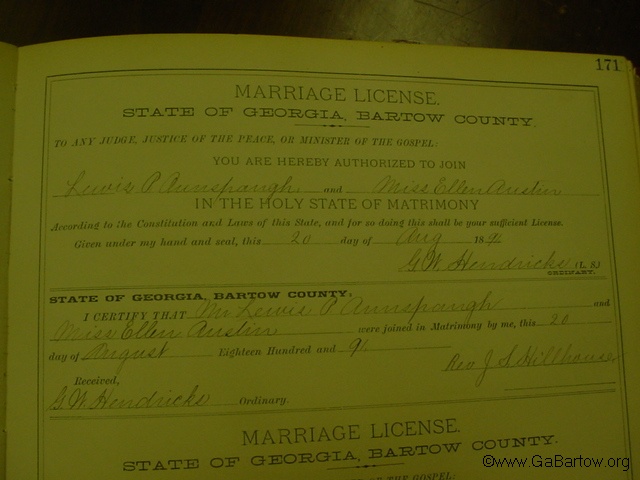 171
MARRIAGE LICENSE.
STATE OF GEORGIA, BARTOW COUNTY.
TO ANY JUDGE, JUSTICE OF THE PEACE, OR MINISTER OF THE GOSPEL:
YOU ARE HEREBY AUTHORIZED TO JOIN
Lewis P Aunspaugh and Miss Ellen Austin
IN THE HOLY STATE OF MATRIMONY
According to the Constitution and Laws of this State, and for so doing this shall be your sufficient License.
Given under my hand and seal, this 20 day of Aug 1891
G W Hendricks (L. S.)
ORDINARY.
STATE OF GEORGIA, BARTOW COUNTY:
I CERTIFY THAT Mr Lewis P Aunspaugh and
Miss Ellen Austin were joined in Matrimony by me, this 20
day of August Eighteen Hundred and 91
Rev J S Hillhouse
Received,
G W Hendricks Ordinary.
MARRIAGE LICENSE.
STATE OF GEORGIA, BARTOW COUNTY.
OR THE GOSPEL:
©www.GaBartow.org